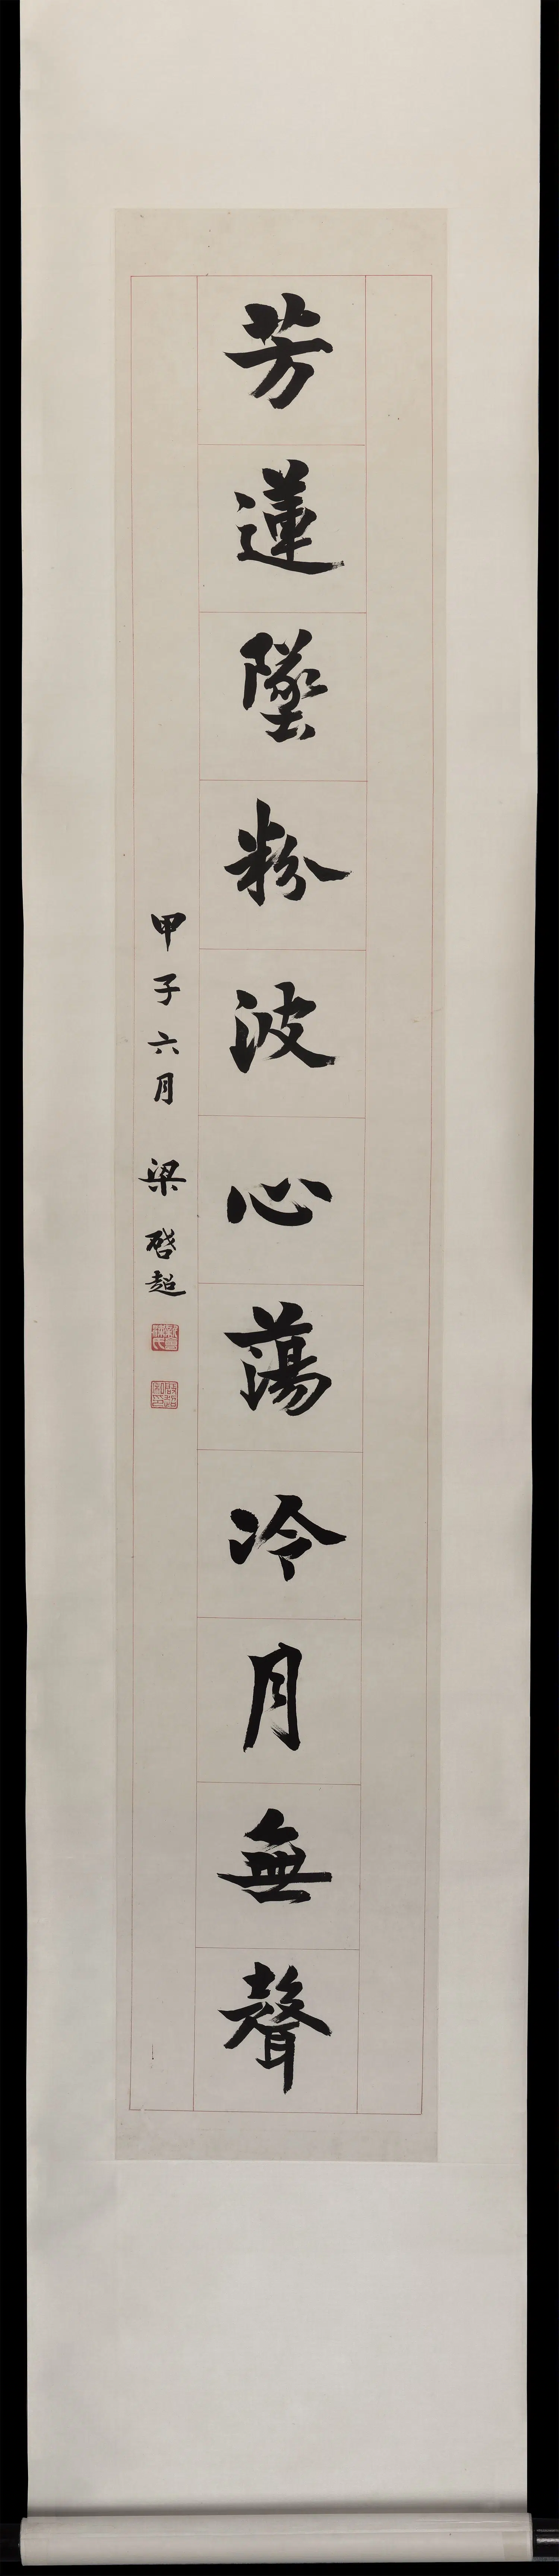 芳蓮墜粉波心蕩冷月無聲
甲子六月 梁啓超